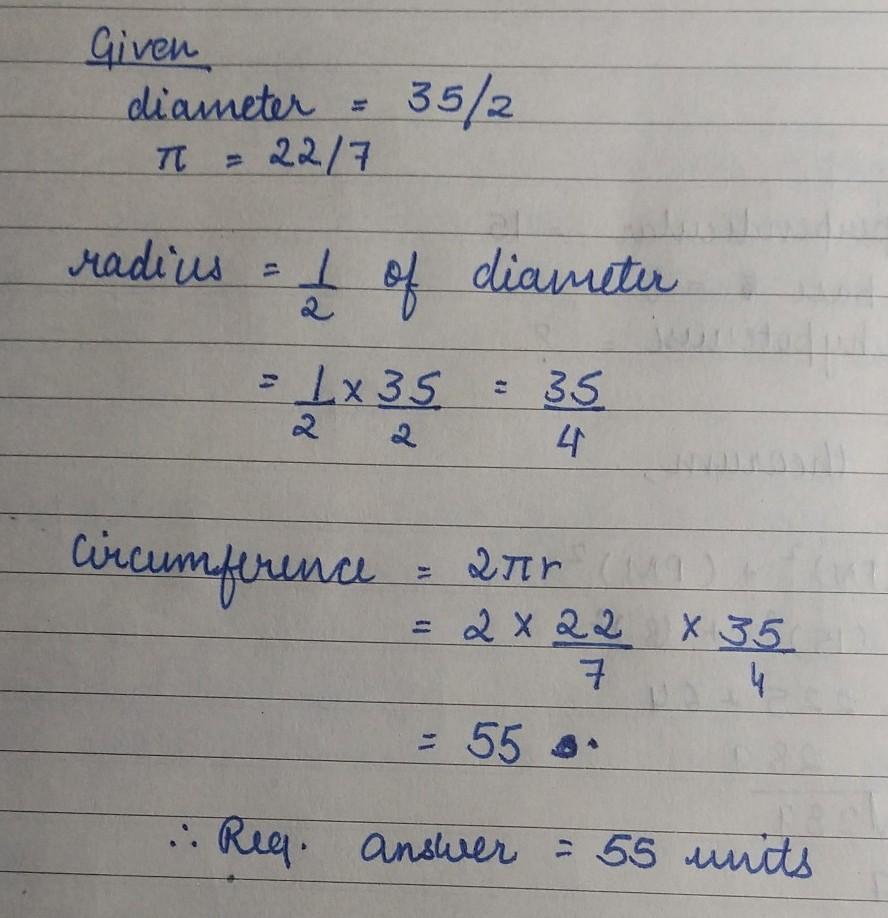 Given
diameter = 35/2
π = 22/7
radius = 1/2 of diameter
= 1/2 × 35/2 = 35/4
Circumference = 2πr
= 2 × 22/7 × 35/4
= 55
∴ Req. answer = 55 units